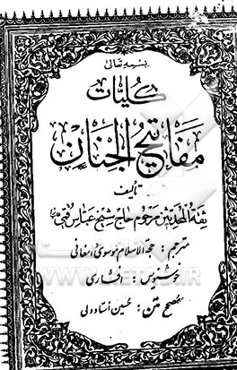 بسمه تعالی
کلیات
مفاتیح الجنان
تألیف
ثقة المحدثین مرحوم حاج شیخ عباس قمی
مترجم: حجة الاسلام موسوی دامغانی
خوشنویس: افشاری
مصحح متن: حسین استاد ولی